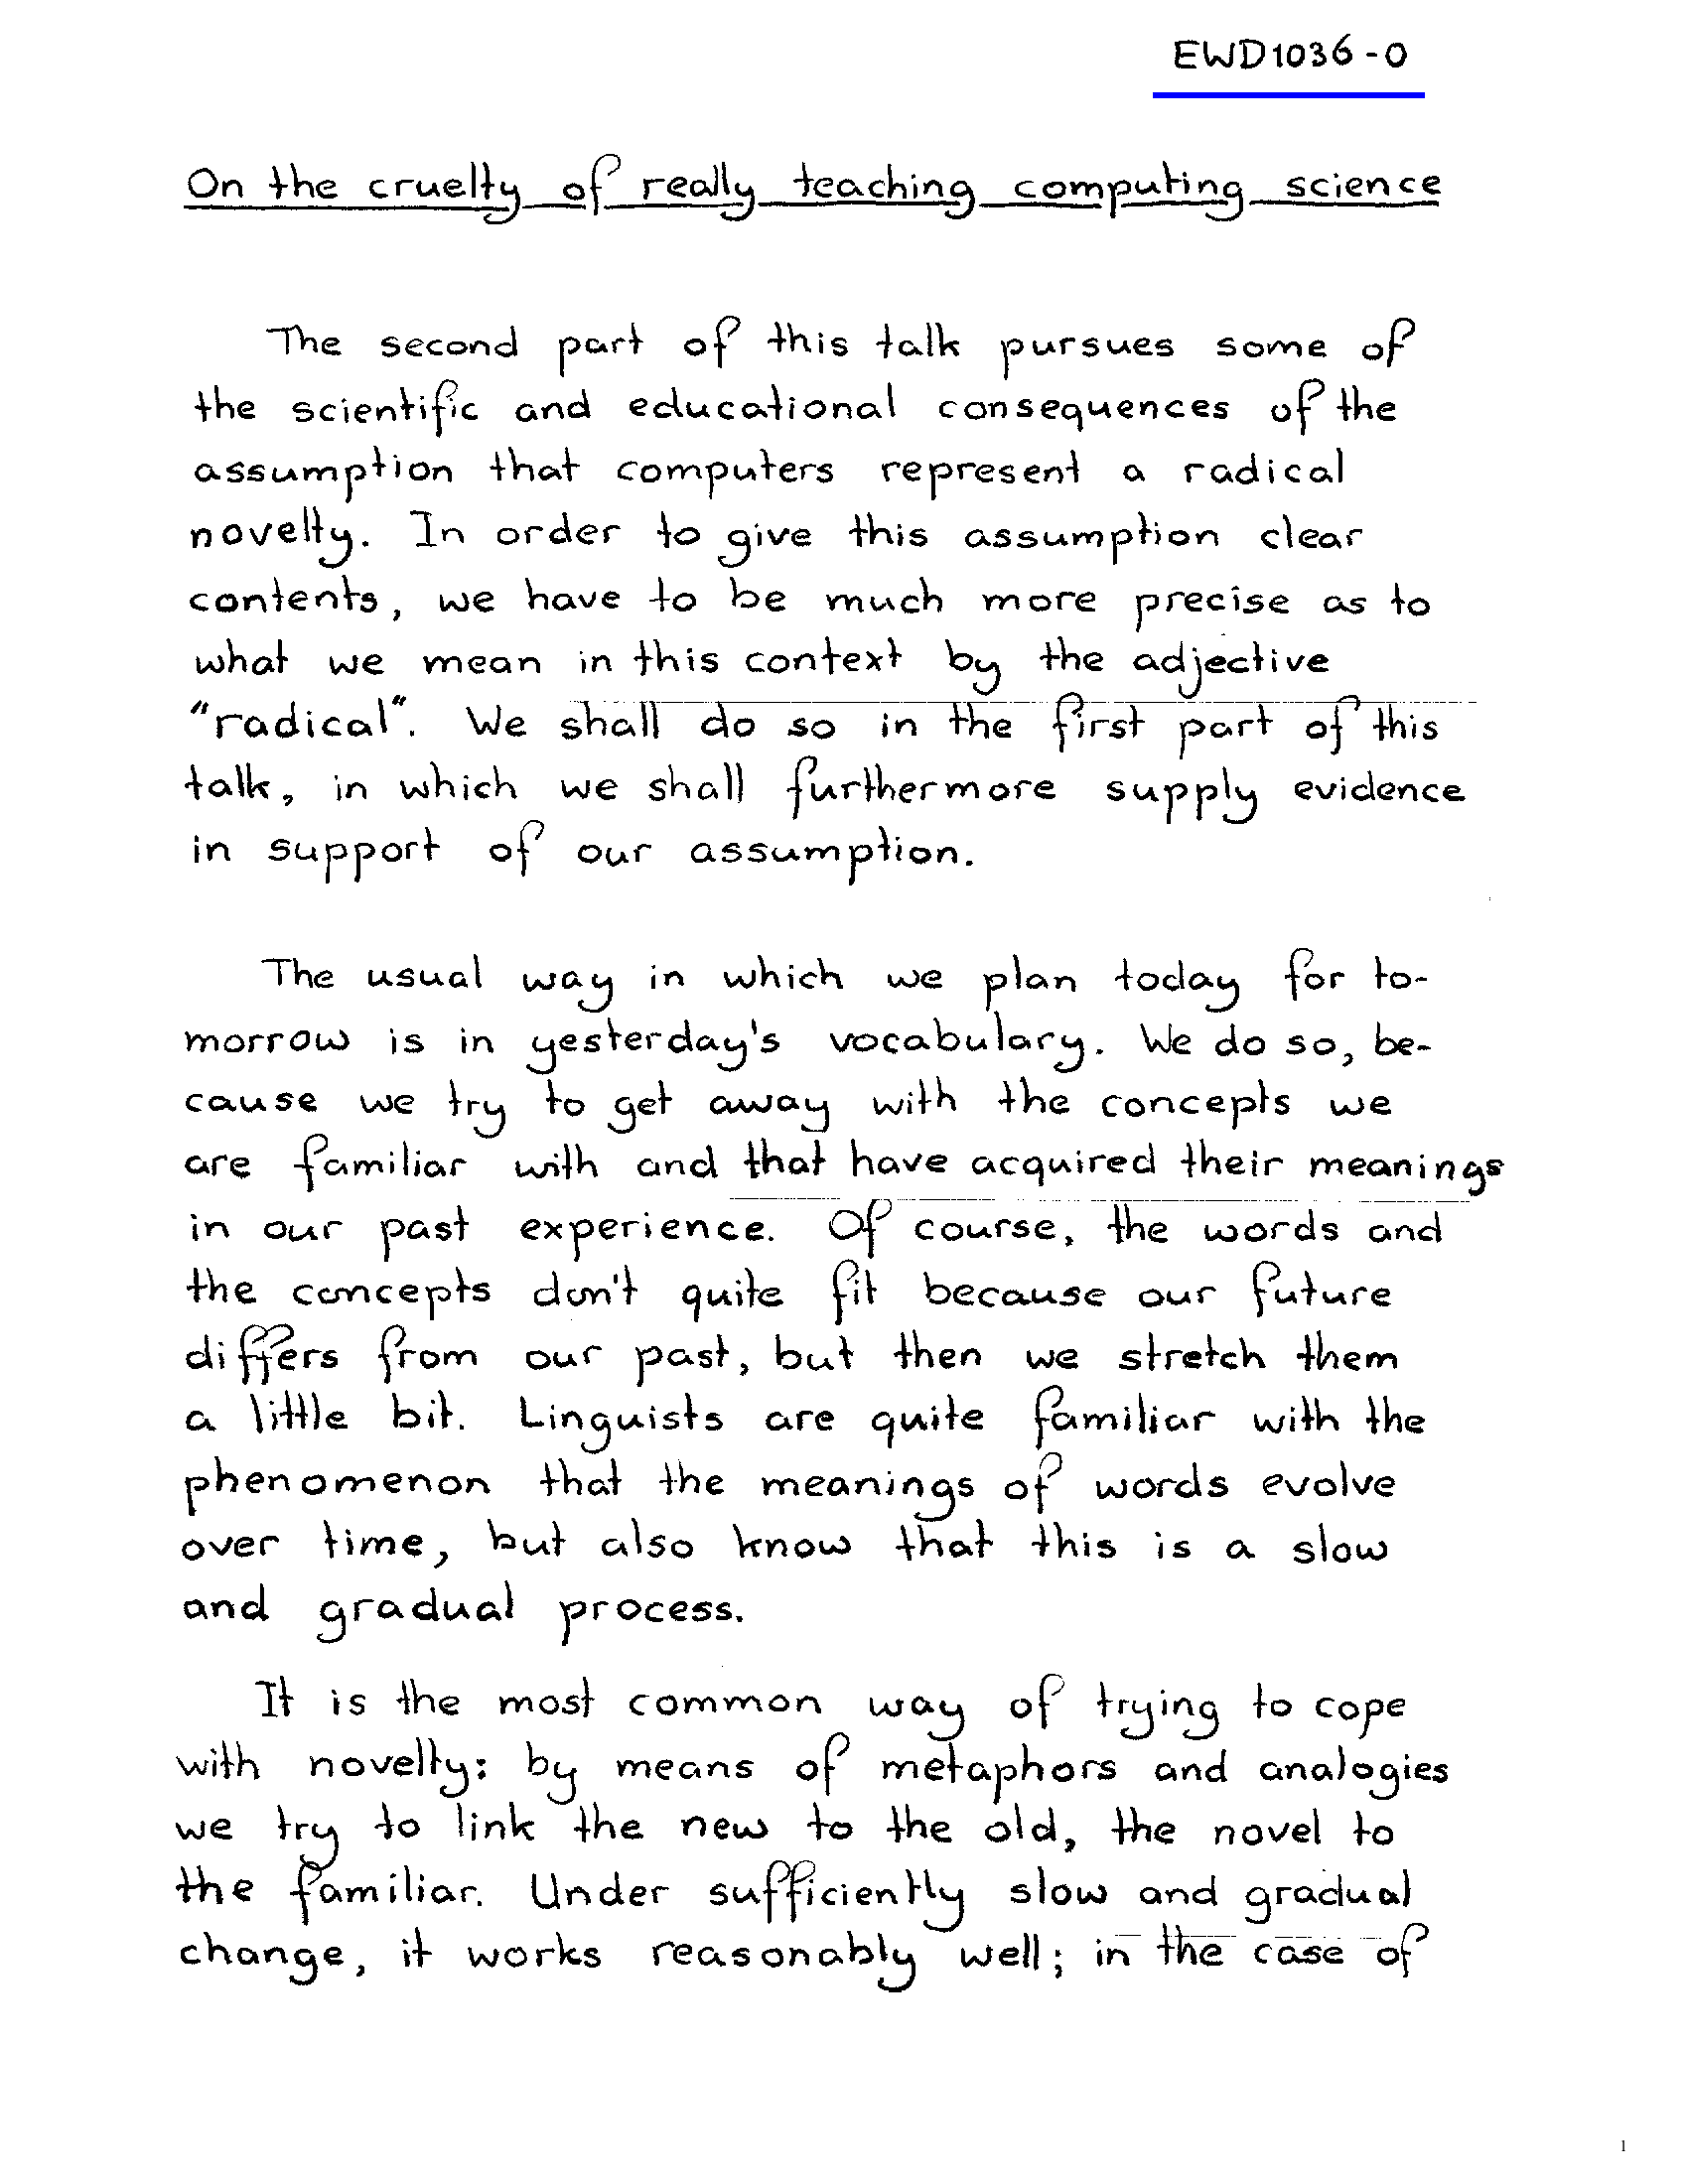 EWD1036-0
On the cruelty of really teaching computing science
The second part of this talk pursues some of
the scientific and educational consequences of the
assumption that computers represent a radical
novelty. In order to give this assumption clear
contents, we have to be much more precise as to
what we mean in this context by the adjective
"radical". We shall do so in the first part of this
talk, in which we shall furthermore supply evidence
in support of our assumption.
The usual way in which we plan today for to-
morrow is in yesterday's vocabulary. We do so, be-
cause we try to get away with the concepts we
are familiar with and that have acquired their meanings
in our past experience. Of course, the words and
the concepts don't quite fit because our future
differs from our past, but then we stretch them
a little bit. Linguists are quite familiar with the
phenomenon that the meanings of words evolve
over time, but also know that this is a slow
and gradual process.
It is the most common way of trying to cope
with novelty: by means of metaphors and analogies
we try to link the new to the old, the novel to
the familiar. Under sufficiently slow and gradual
change, it works reasonably well; in the case of
1